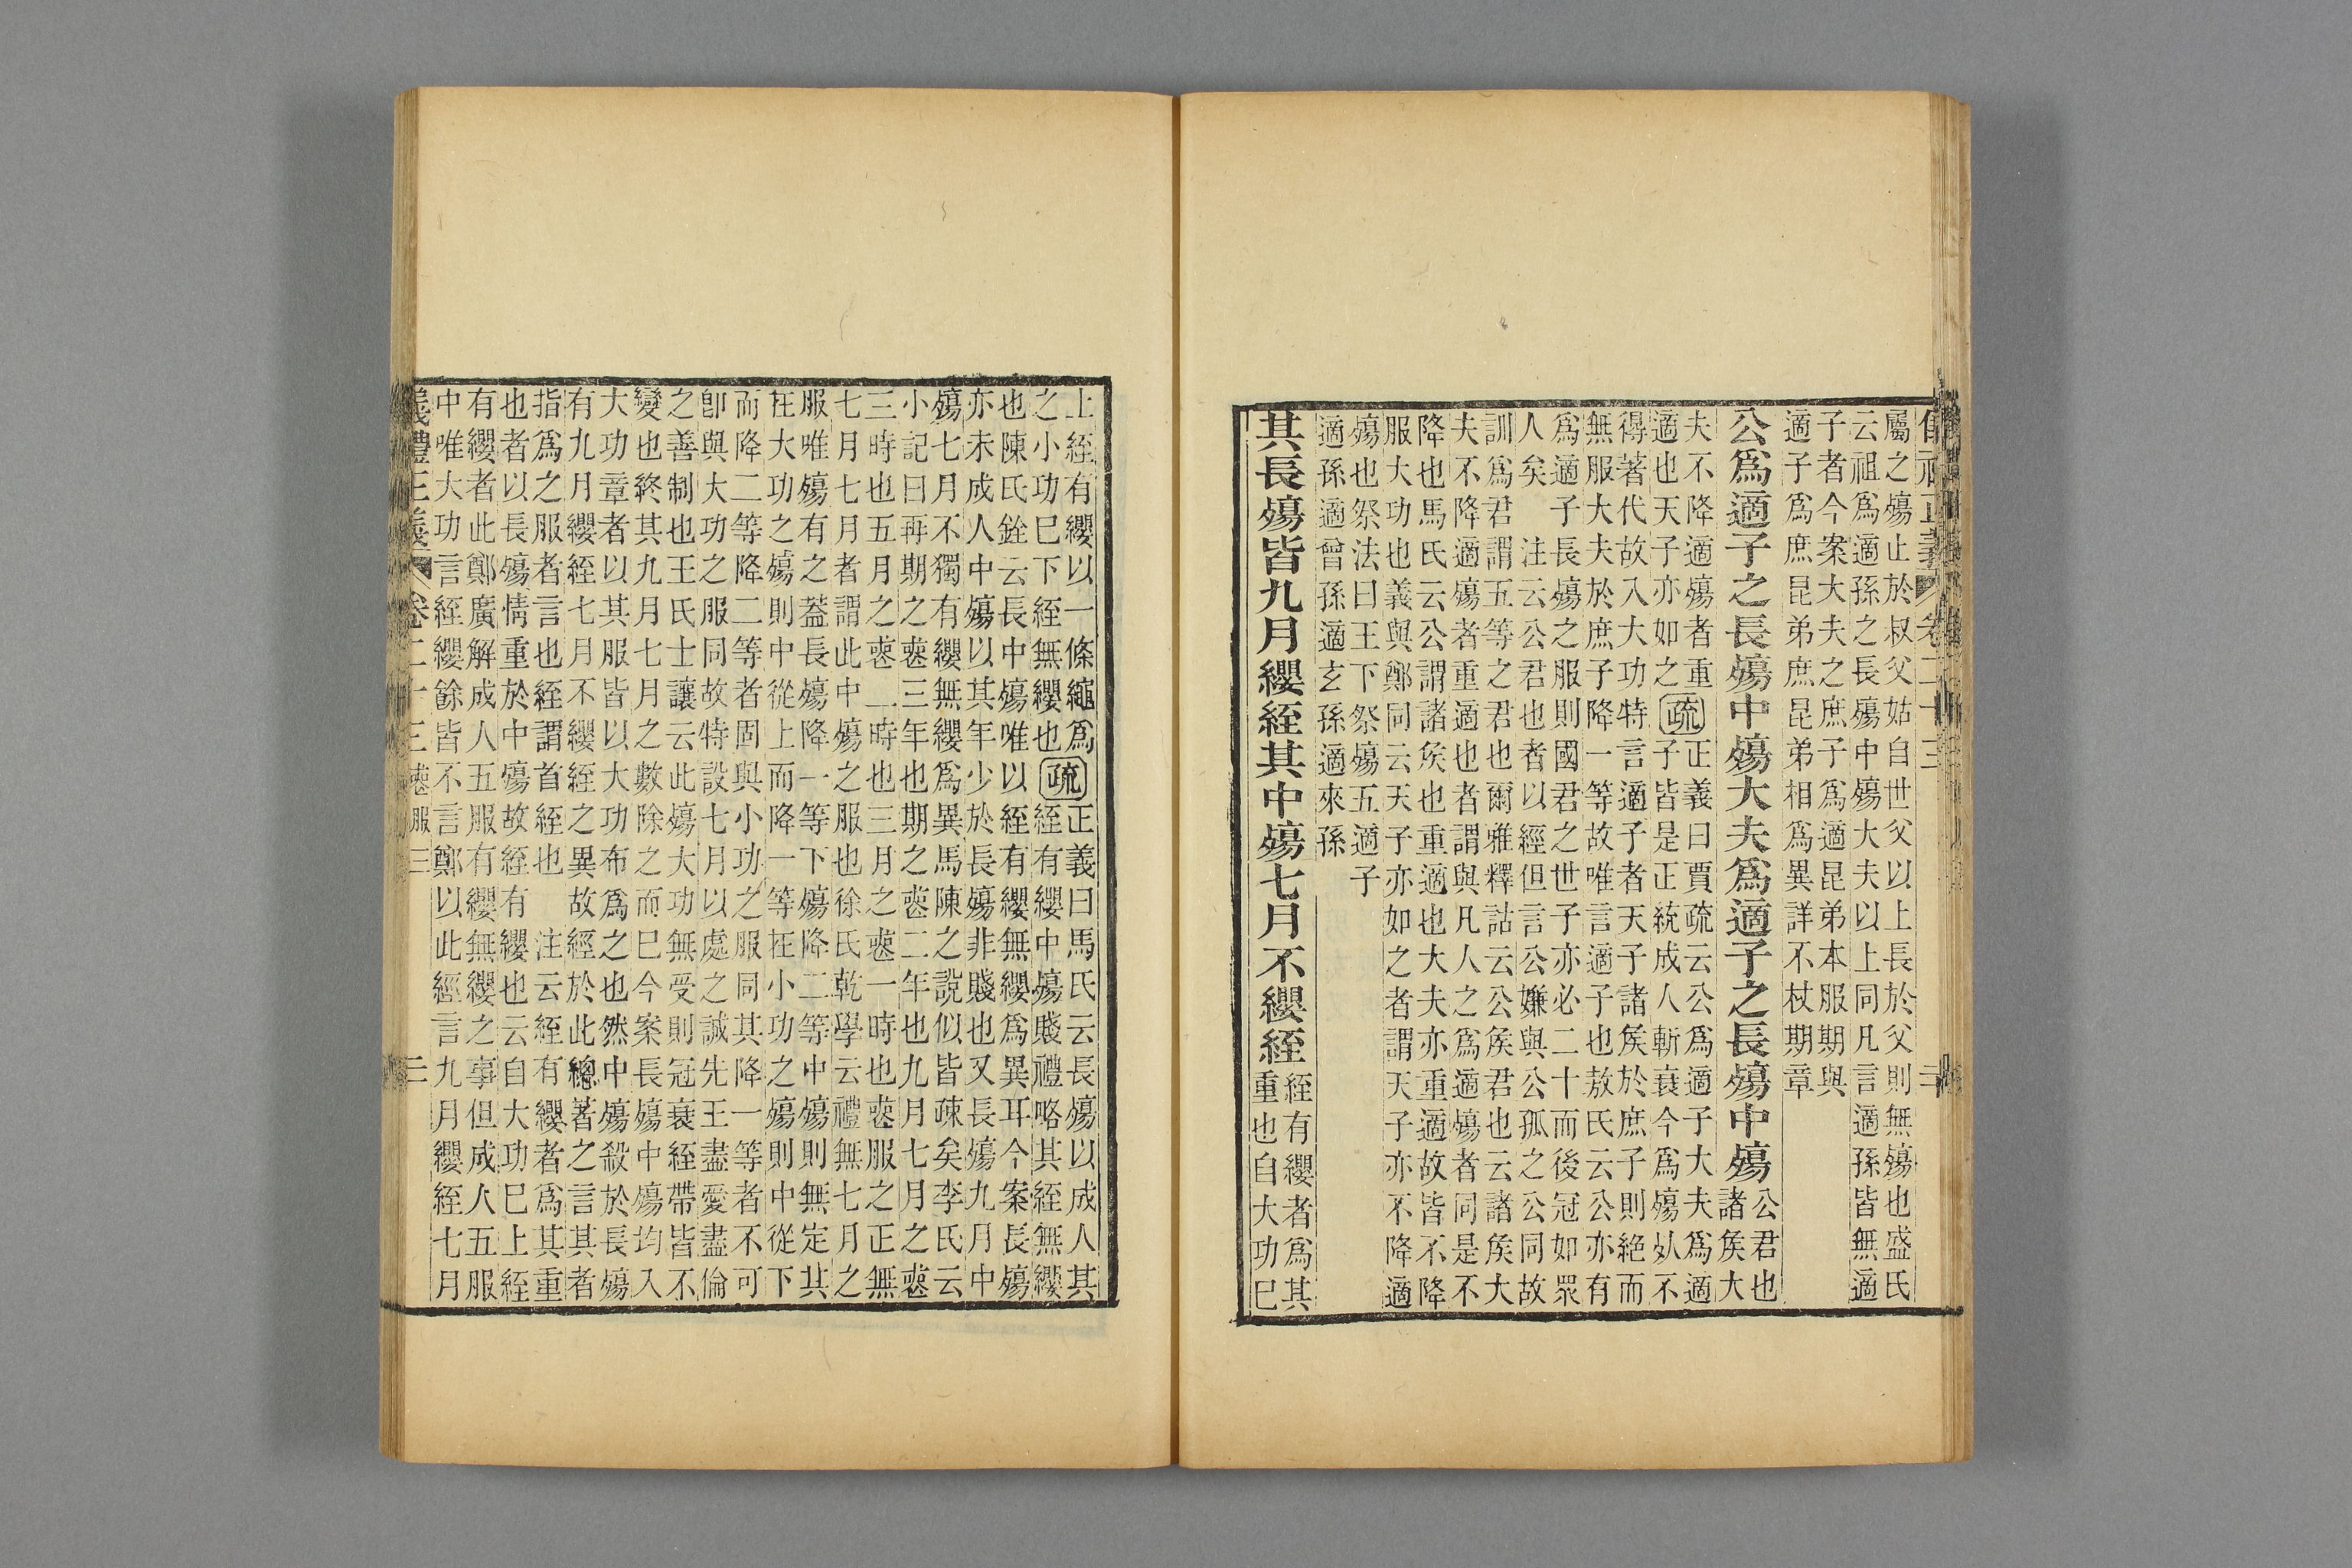 儀禮正義 卷二十三 二
屬之殤止於叔父姑自世父以上長於父則無殤也盛氏
云祖爲適孫之長殤中殤大夫以上同凡言適孫皆無適
子者今案大夫之庶子爲適昆弟本服期與
適子爲庶昆弟庶昆弟相爲異詳不杖期章
公爲適子之長殤中殤大夫爲適子之長殤中殤 公君也
諸矦大
夫不降適殤者重
適也天子亦如之
疏 正義曰賈疏云公爲適子大夫爲適
子皆是正統成人斬衰今爲殤死不
得著代故入大功特言適子者天子諸矦於庶子則絕而
無服大夫於庶子降一等故唯言適子也敖氏云公亦有
爲適子長殤之服則國君之世子亦必二十而後冠如眾
人矣　注云公君也者以經但言公嫌與公孤之公同故
訓爲君謂五等之君也爾雅釋詁云公矦君也云諸矦大
夫不降適殤者重適也者謂與凡人之爲適殤者同是不
降也馬氏云公謂諸矦也重適也大夫亦重適故皆不降
服大功也義與鄭同云天子亦如之者謂天子亦不降適
殤也祭法曰王下祭殤五適子
適孫適曾孫適玄孫適來孫
其長殤皆九月纓絰其中殤七月不纓絰 絰有纓者爲其
重也自大功已
上絰有纓以一條繩爲
之小功已下絰無纓也
疏 正義曰馬氏云長殤以成人其
絰有纓中殤賤禮略其絰無纓
也陳氏銓云長中殤唯以絰有纓無纓爲異耳今案長殤
亦未成人中殤以其年少於長殤非賤也又長殤九月中
殤七月不獨有纓無纓爲異馬陳之說似皆疎矣李氏云
小記曰再期之喪三年也期之喪二年也九月七月之喪
三時也五月之喪二時也三月之喪一時也喪服之正無
七月七月者謂此中殤之服也徐氏乾學云禮無七月之
服唯殤有之葢長殤降一等下殤降二等中殤則無定其
在大功之殤則中從上而降一等在小功之殤則中從下
而降二等降二等者固與小功之服同其降一等者不可
卽與大功之服同故特設七月以處之誠先王盡愛盡倫
之善制也王氏士讓云此殤大功無受則冠衰絰帶皆不
變也終其九月七月之數除之而已今案長殤中殤均入
大功章者以其服皆以大功布爲之也然中殤殺於長殤
有九月纓絰七月不纓絰之異故經於此總著之言其者
指爲之服者言也絰謂首絰也　注云絰有纓者爲其重
也者以長殤情重於中殤故絰有纓也云自大功已上絰
有纓者此鄭廣解成人五服有纓無纓之事但成人五服
中唯大功言絰纓餘皆不言鄭以此經言九月纓絰七月
儀禮正義 卷二十三 喪服三 二